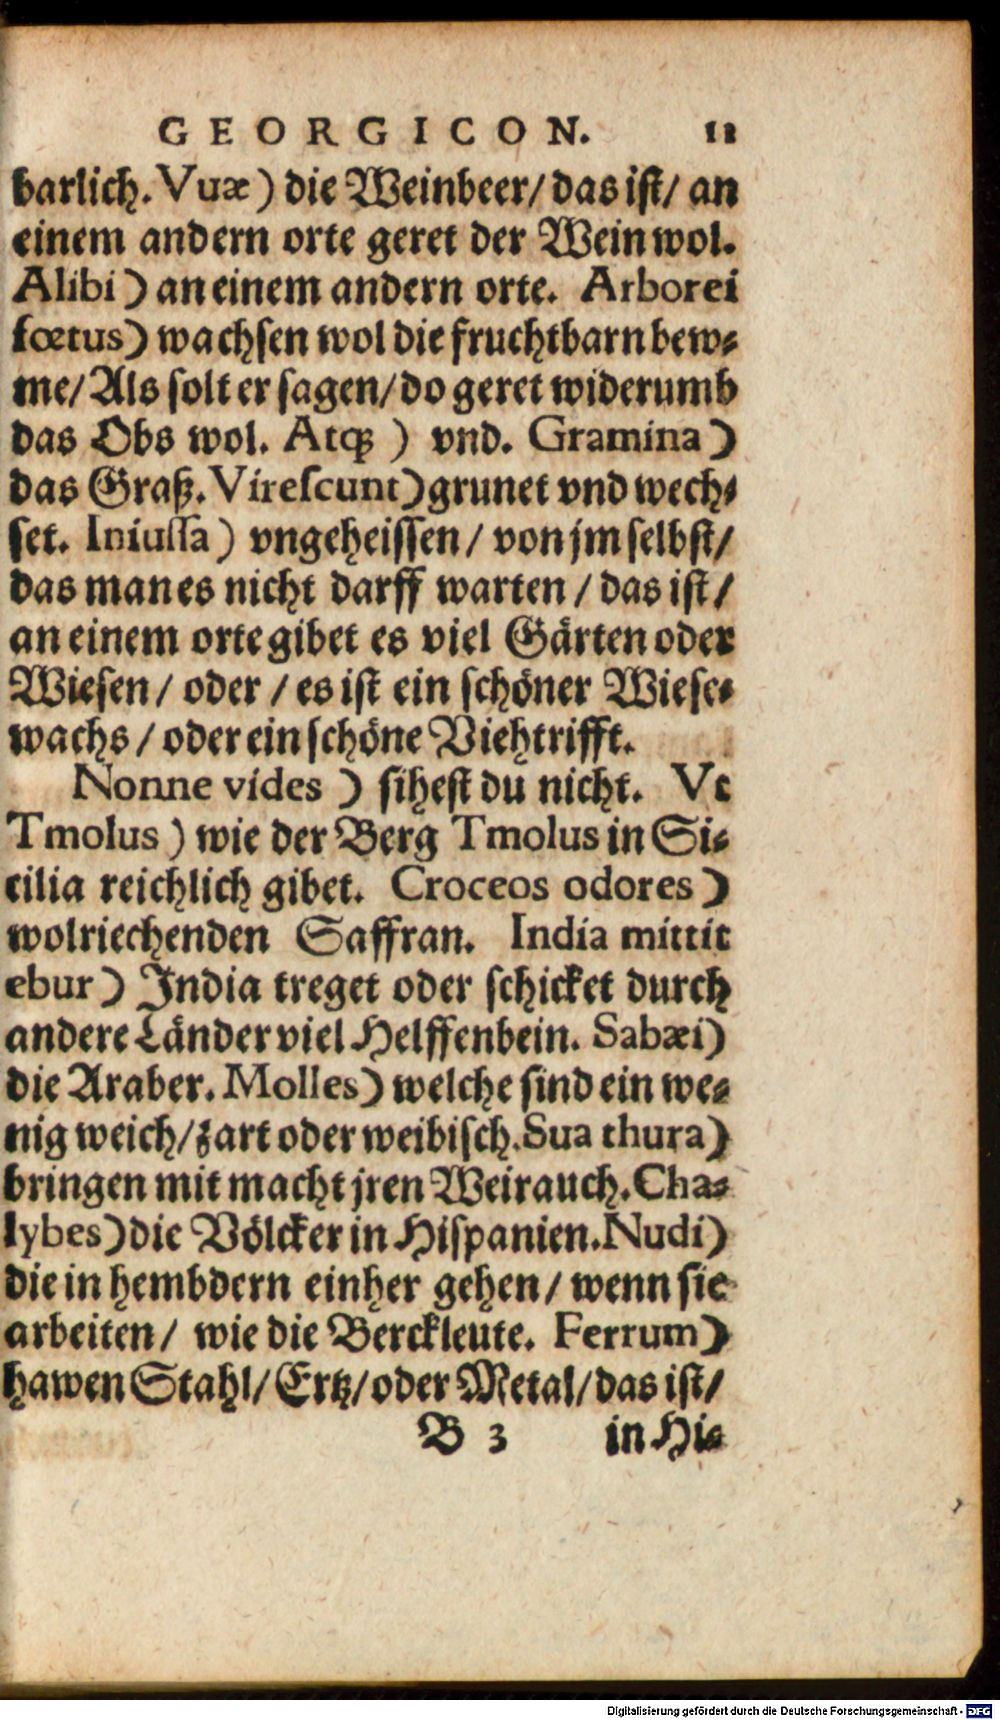 GEORGICON. 11
barlich. Vuæ) die Weinbeer/ das ist/ an
einem andern orte geret der Wein wol.
Alibi) an einem andern orte. Arborei
fœtus) wachsen wol die fruchtbarn bew⸗
me/ Als solt er sagen/ do geret widerumb
das Obs wol. Atqꝫ) vnd. Gramina)
das Graß. Virescunt) grunet vnd wech⸗
set. Iniussa) vngeheissen/ von jm selbst/
das man es nicht darff warten/ das ist/
an einem orte gibet es viel Gärten oder
Wiesen/ oder/ es ist ein schöner Wiese⸗
wachs/ oder ein schöne Viehtrifft.
Nonne vides) sihest du nicht. Vt
Tmolus) wie der Berg Tmolus in Si⸗
cilia reichlich gibet. Croceos odores)
wolriechenden Saffran. India mittit
ebur) India treget oder schicket durch
andere Länder viel Helffenbein. Sabæi)
die Araber. Molles) welche sind ein we⸗
nig weich/ zart oder weibisch. Sua thura)
bringen mit macht jren Weirauch. Cha⸗
lybes) die Völcker in Hispanien. Nudi)
die in hembdern einher gehen/ wenn sie
arbeiten/ wie die Berckleute. Ferrum)
hawen Stahl/ Ertz/ oder Metal/ das ist/
B 3 in Hi⸗
Digitalisierung gefördert durch die Deutsche Forschungsgemeinschaft - DFG